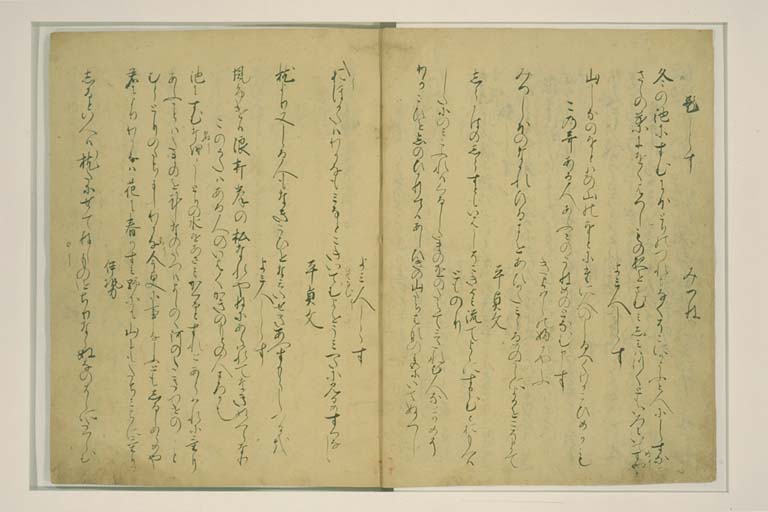 題しらす　みつね
冬の池にすむにほとりのつれもなくそこにかよふと人にしらすな
さゝの葉にをくはつしもの夜をさむみしみはつくともいろにいてめや
よみ人しらす
山しなのをとはの山のをとにたに人のしるへくわかこひめかも
この哥ある人あふみのうねめのとなむ申す
きよはらのふかやふ
みつしほのなかれひるまをあひかたみみるめのうらによるをこそまて
平貞文
しらかはのしらすともいはしそこきよみ流てよゝにすまむとおもへは
とものり
したにのみこふれはくるしたまのをのたえてみたれむ人なとかめそ
わかこひをしのひかねてはあしひきの山たちはなの色にいてぬへし
よみ人しらす
おほかたはわかなもみなとこきいてなむよをうみへたに見るめすくなし
平貞文
枕より又しる人もなきこひをなみたせきあへすもらしつる哉
よみ人しらす
風ふけは浪打岸の松なれやねにあらはれてなきぬへらなり
このうたはある人のいはくかきのもとの人まろか也
池にすむ名をゝしとりの水をあさみかくるとすれとあらはれにけり
あふことはたまのをはかりなのたつはよしのゝ河のたきつせのこと
むらとりのたちにしわか名今更にことなしふともしるしあらめや
君によりわかなは花に春霞野にも山にもたちみちにけり
伊勢
しるといへは枕たにせてねしものをちりならぬ名のそらにたつらむ